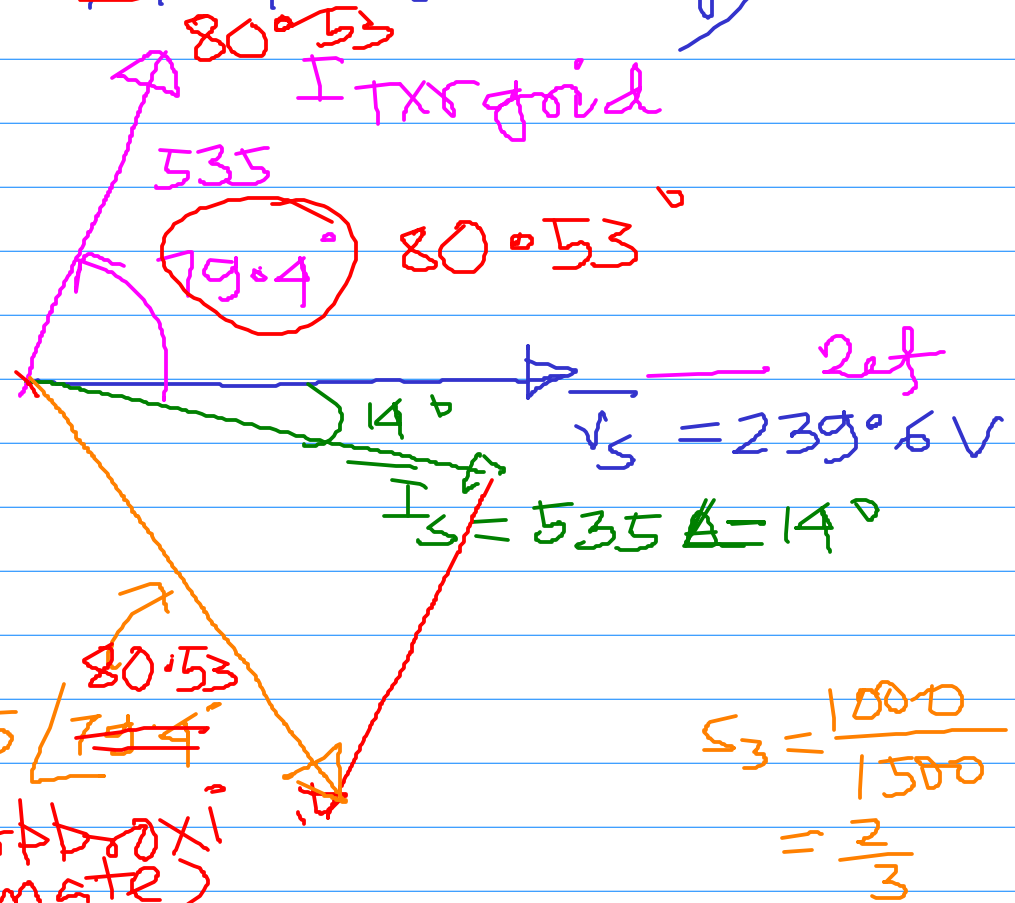 80.53
I Txrgrid
535
79.4° 80.53°
Ref
14°
Vs = 239.6 V
Is = 535 ∠-14°
80.53
5 ∠74.4°
S3 = 1000
1500
= 2
3